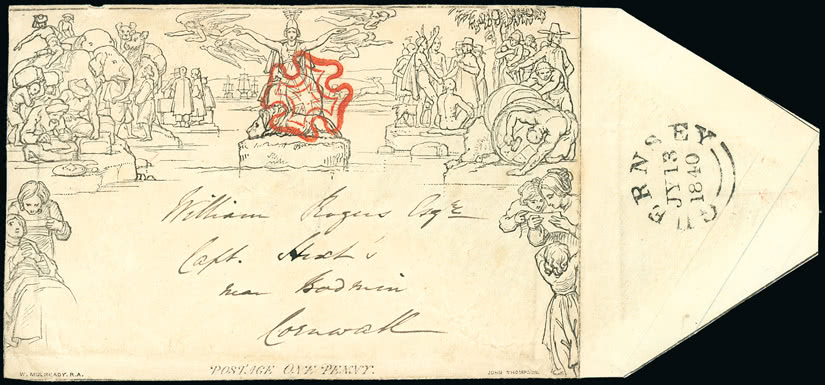 William Rogers Esqre
Capt. Hext's
near Bodmin
Cornwall
W. MULREADY. R.A.
POSTAGE ONE PENNY.
JOHN THOMPSON
GUERNSEY
JY 13
1840